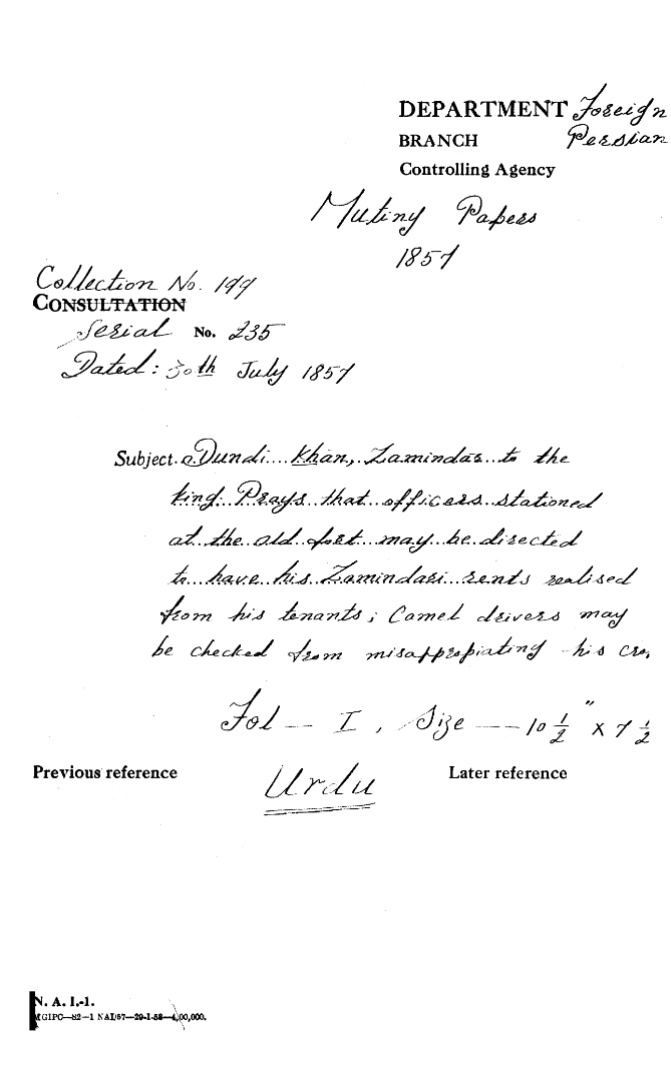 DEPARTMENT Foreign
BRANCH Persian
Controlling Agency
Mutiny Papers
1857
Collection No. 199
CONSULTATION
Serial No. 235
Dated: 30th July 1857
Subject. Dundi Khan, Zamindar to the
king. Prays that officers stationed
at the old fort may be directed
to have his Zamindari rents realised
from his tenants; Camel drivers may
be checked from misappropiating his cro,
Fol — I, Size — 10 1/2" x 7 1/2
Previous reference Urdu Later reference
N. A. I.-1.
MGIPC—S2—1 NAI/57—29-1-58—4,00,000.